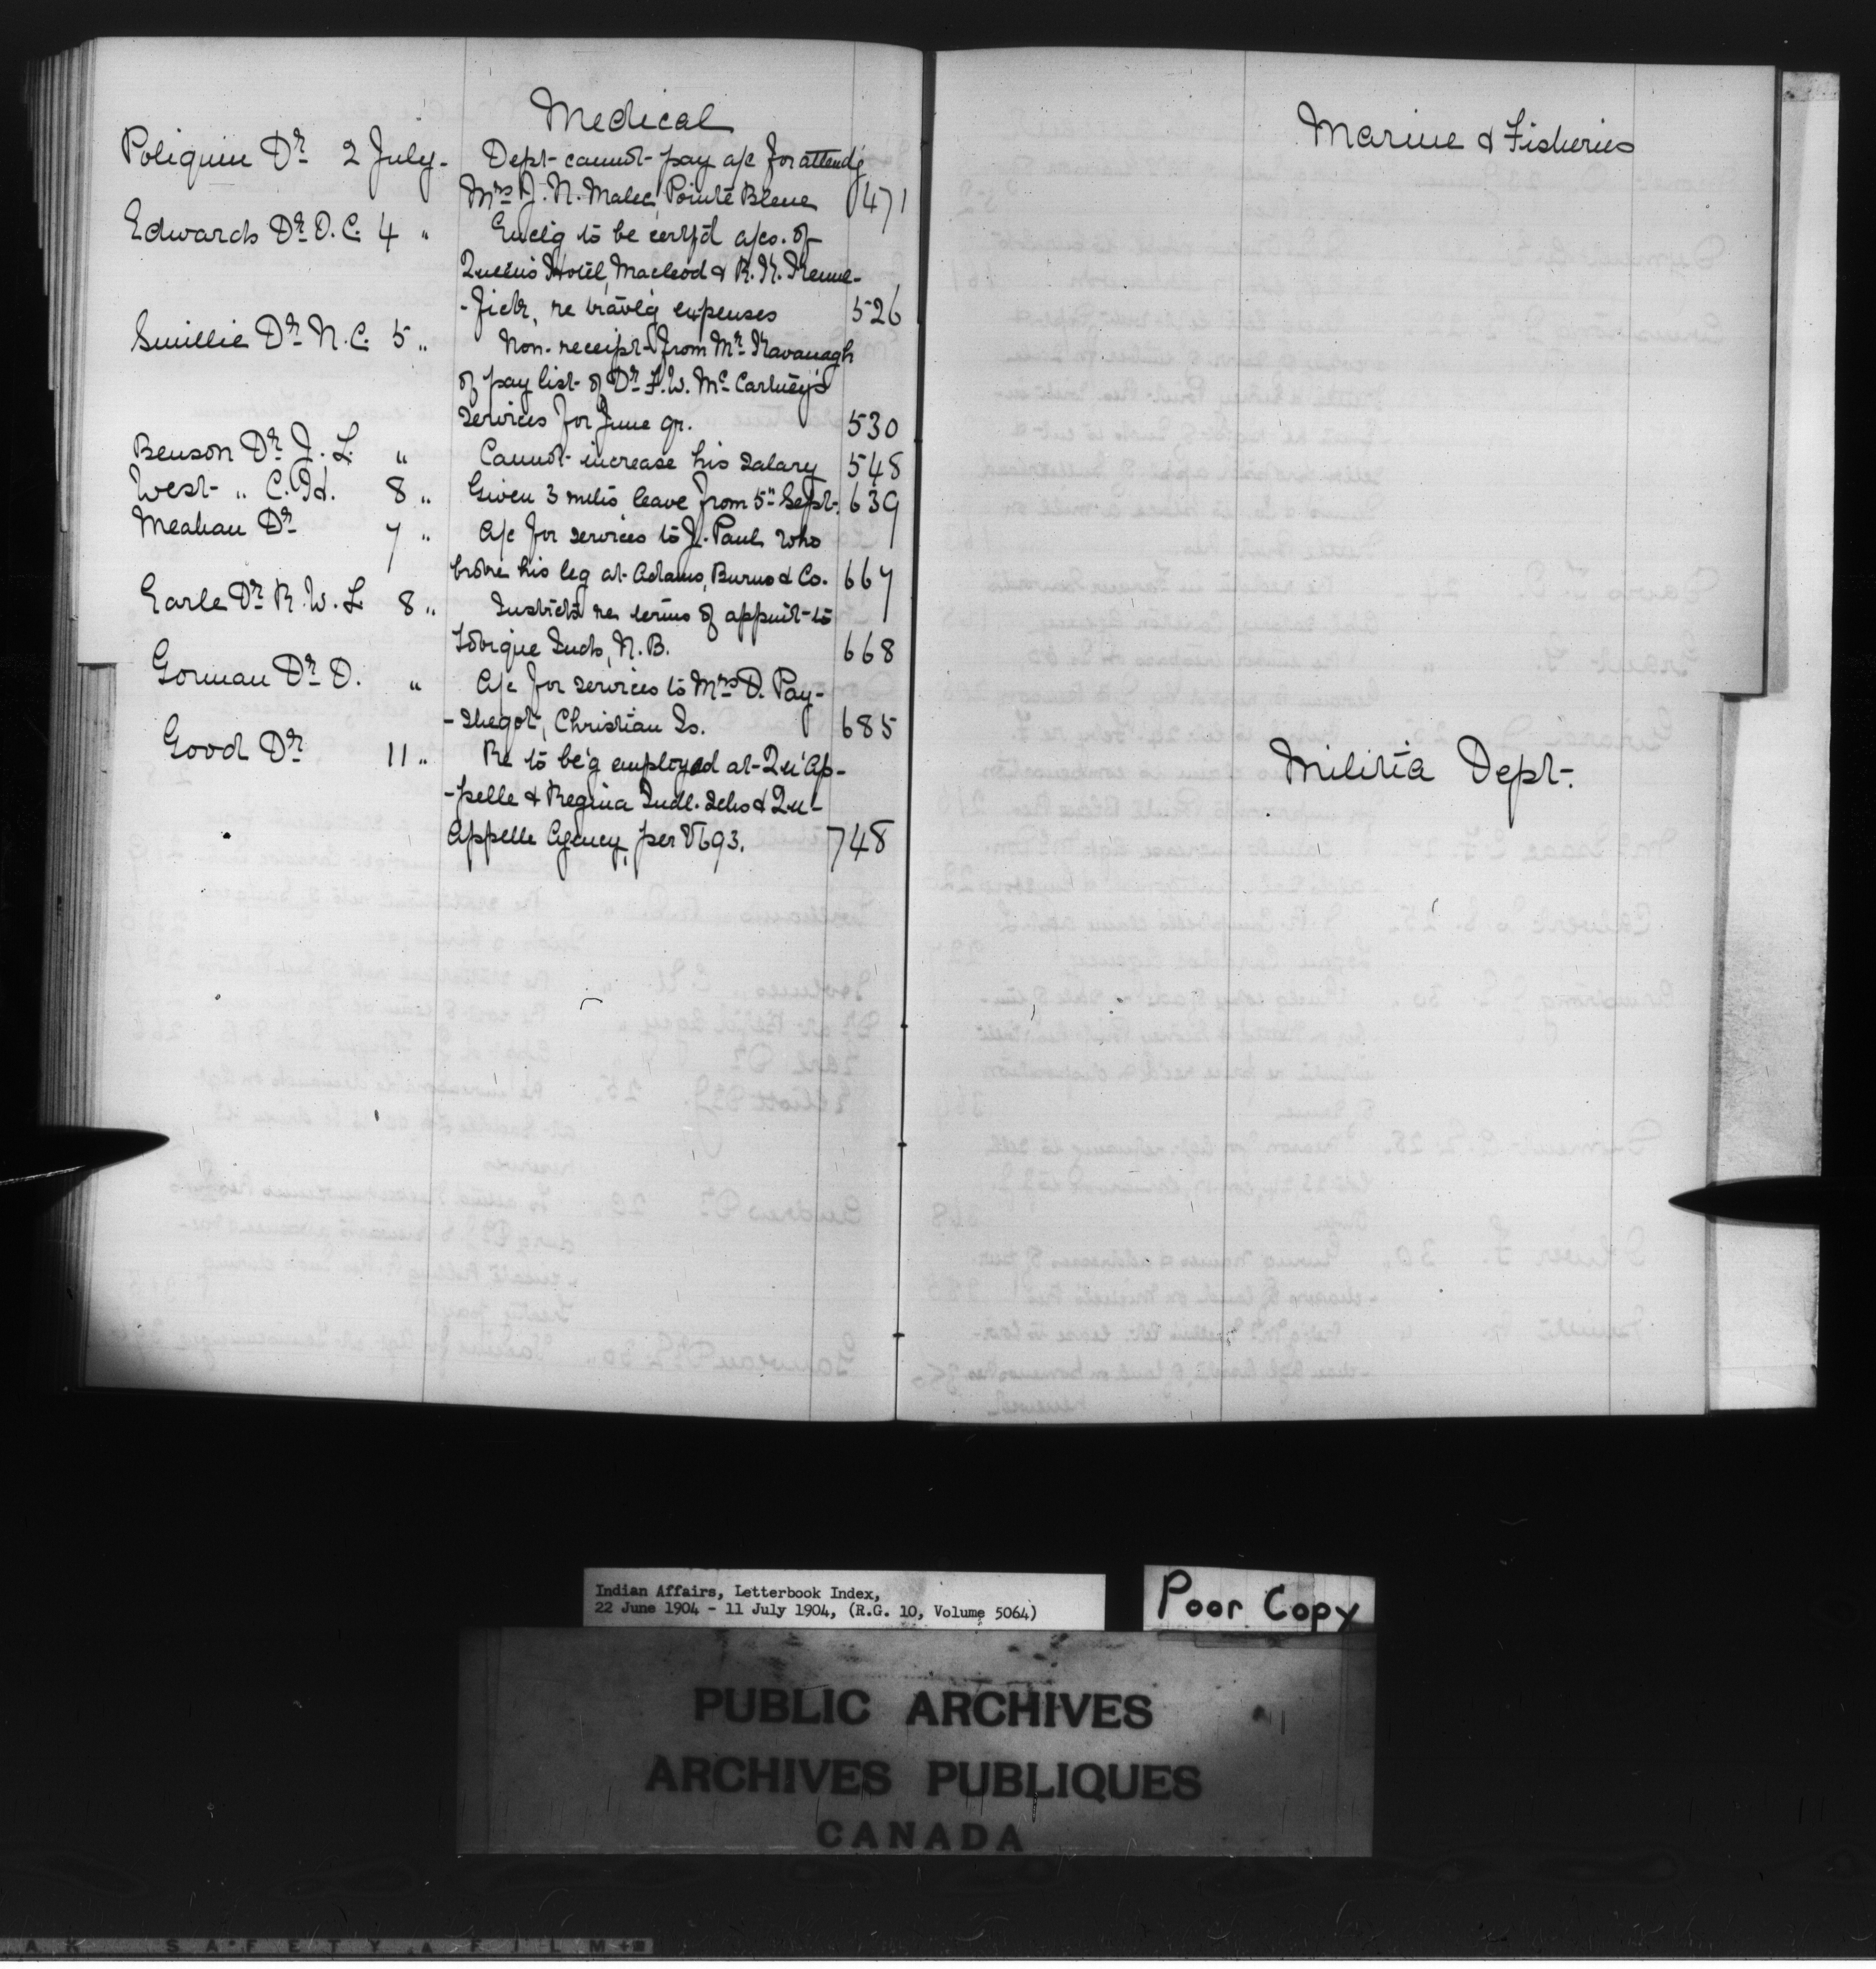 Medical
Poliquin Dr 2 July. Dept cannot pay a/c for attend'g
Mrs J. N. Malec, Pointe Bleue 471
Edwards Dr O.C. 4 " Enclg to be certf'd a/cs. of
Queens Hotel, Macleod & R. K.
re travlg expenses 526
Smillie Dr N.C. 5 " Non-receipt from Mr Kavanagh
of pay list of Dr F. W. McCartney's
services for June qr. 530
Benson Dr J. L. " Cannot increase his salary 548
West " C. H. 8 " Given 3 mths leave from 5" Sept. 639
Meahan Dr 7 " A/c for services to J. Paul who
broke his leg at Adams, Burns & Co. 667
Earle Dr R. W. L. 8 " Instrcts re terms of appmt to
Tobique Inds, N.B. 668
Gorman Dr D. " A/c for services to Mrs D. Pay-
-shegot, Christian Is. 685
Good Dr 11 " Re to be'g employed at Qu'Ap-
-pelle & Regina Indl. Schs & Qu'-
Appelle Agency, per 693. 748
Marine & Fisheries
Militia Dept.
Indian Affairs, Letterbook Index,
22 June 1904 - 11 July 1904, (R.G. 10, Volume 5064)
Poor Copy
PUBLIC ARCHIVES
ARCHIVES PUBLIQUES
CANADA
SAFETY FILM